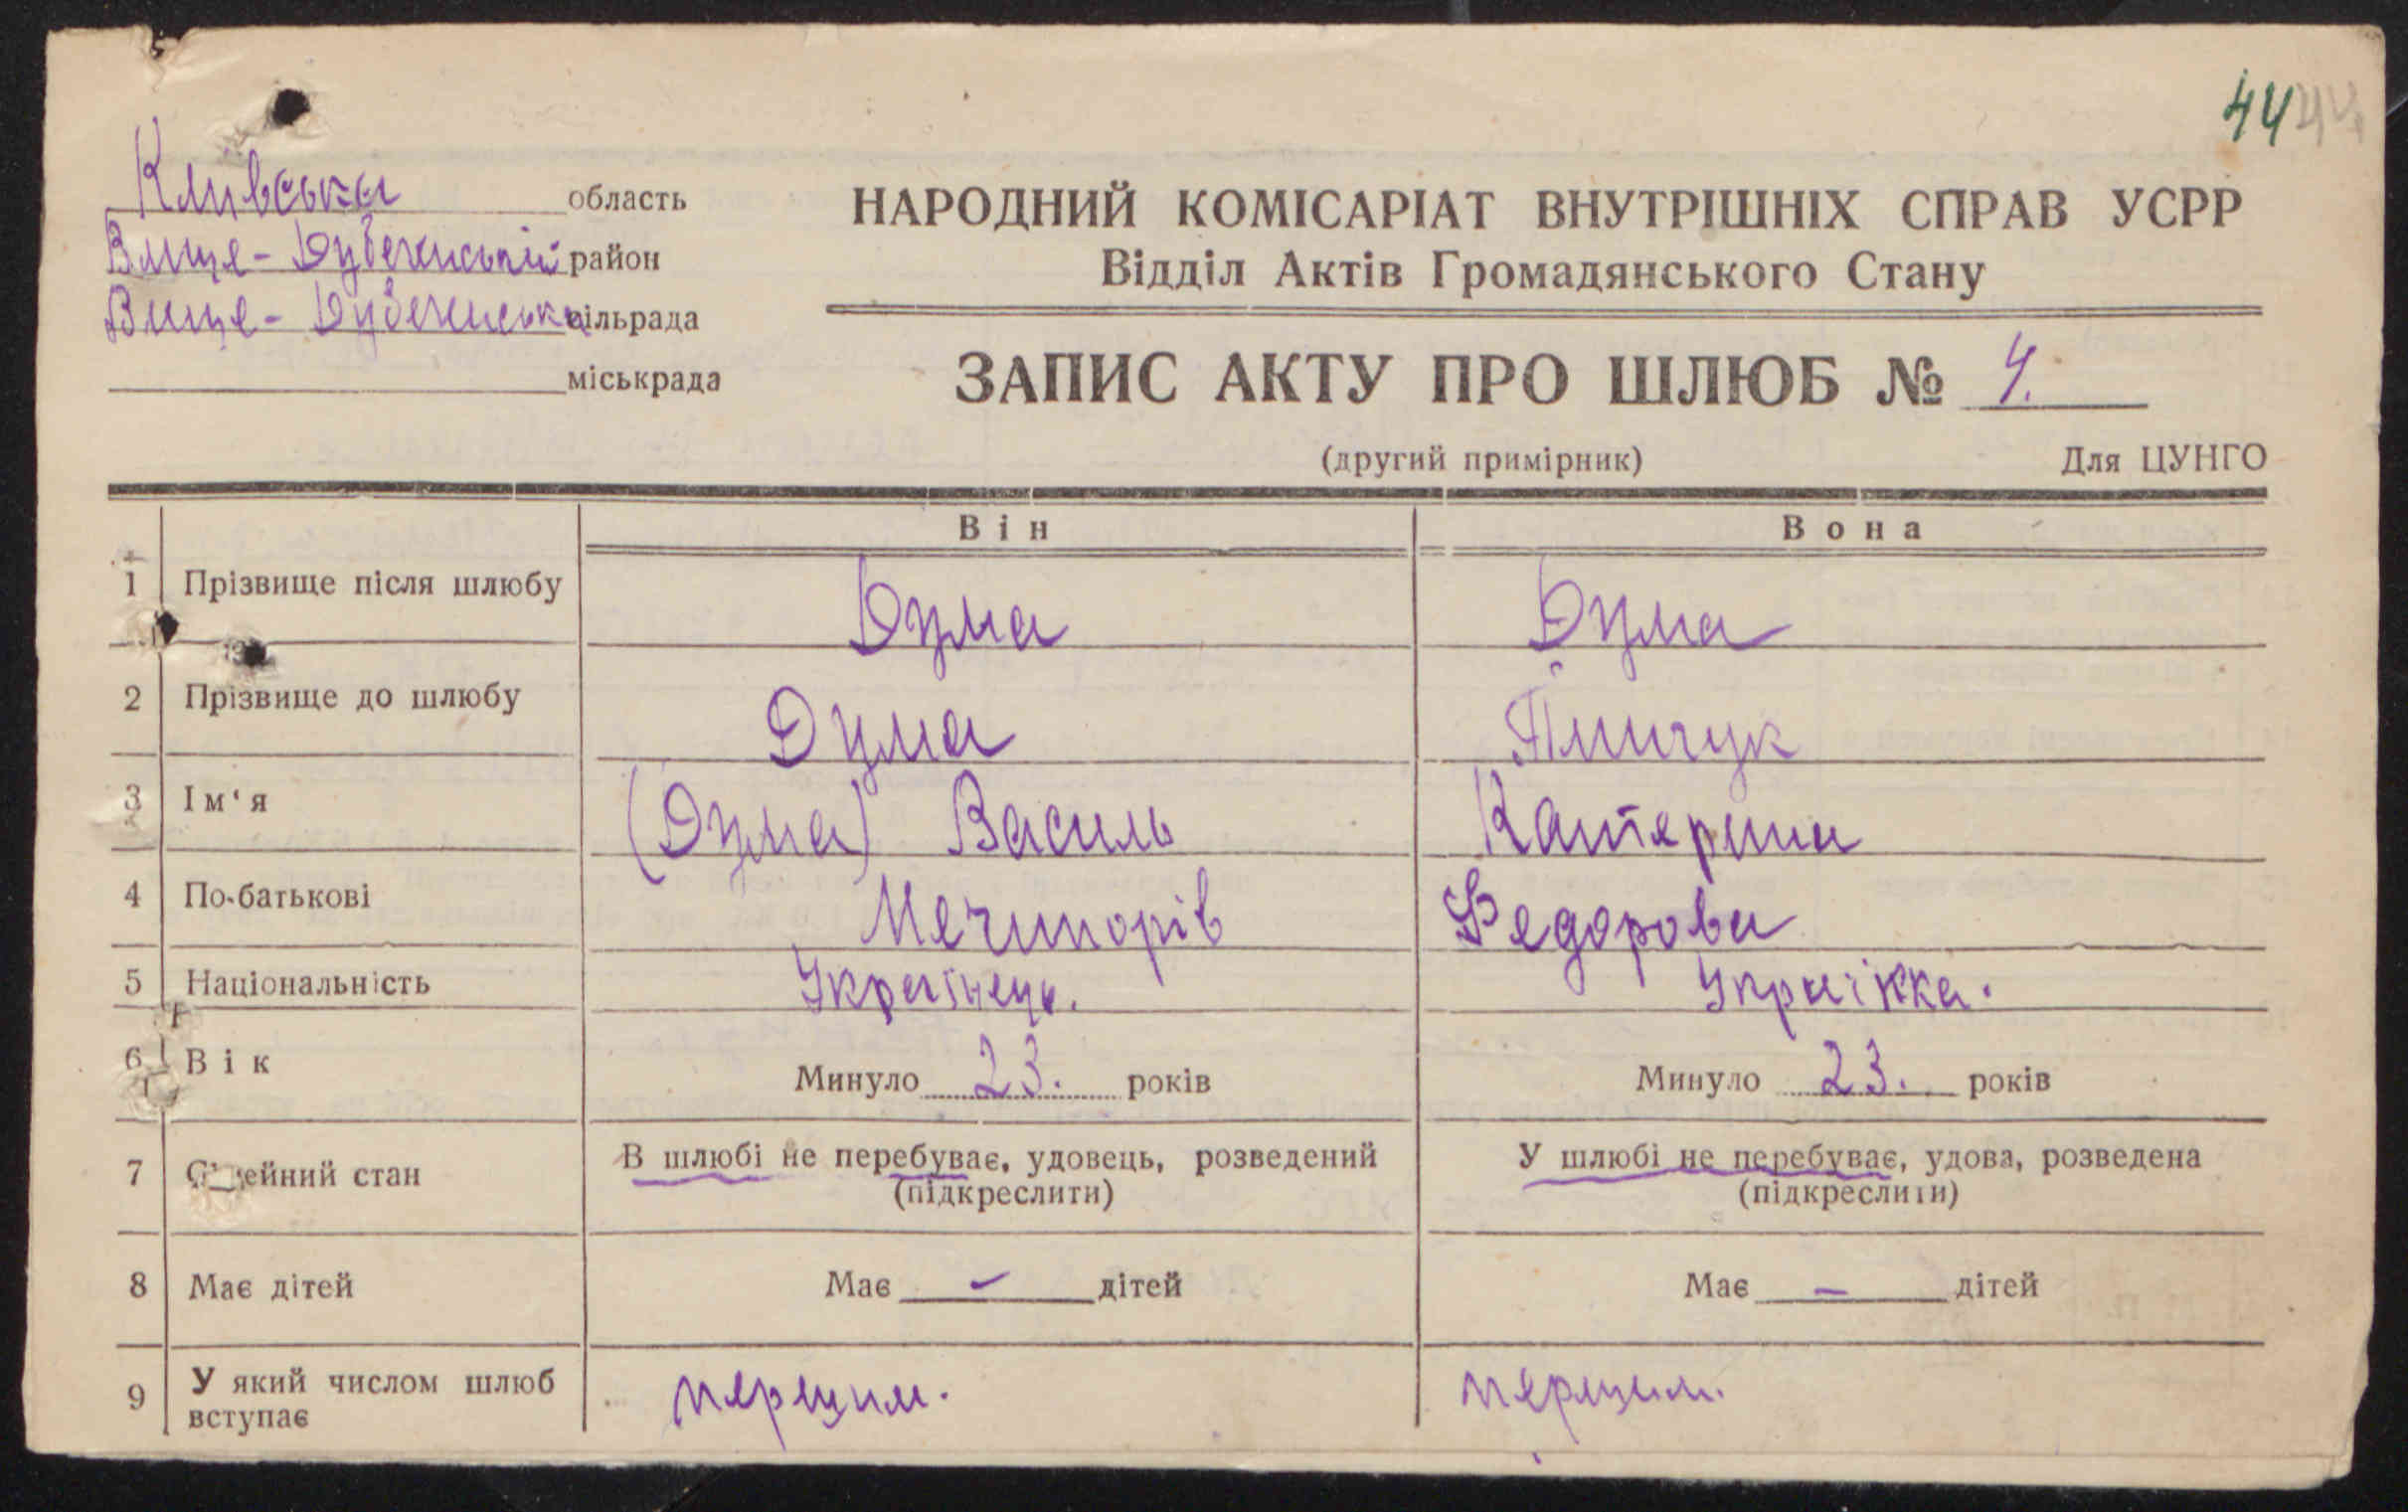 44 44
Київська область
Вище-Дубечанський район
Вище-Дубечанська сільрада
міськрада
НАРОДНИЙ КОМІСАРІАТ ВНУТРІШНІХ СПРАВ УСРР
Відділ Актів Громадянського Стану
ЗАПИС АКТУ ПРО ШЛЮБ № 4.
(другий примірник) Для ЦУНГО
Він Вона
1 Прізвище після шлюбу Дума Дума
2 Прізвище до шлюбу Дума
3 Ім‘я (Дума) Василь Катерина
4 По-батькові Мечипорів Федорова
5 Національність Українець. Украіжка.
6 Вік Минуло 23. років Минуло 23. років
7 Сімейний стан В шлюбі не перебуває, удовець, розведений У шлюбі не перебуває, удова, розведена
(підкреслити) (підкреслити)
8 Має дітей Має — дітей Має — дітей
9 У який числом шлюб вступає перщим. перщим.